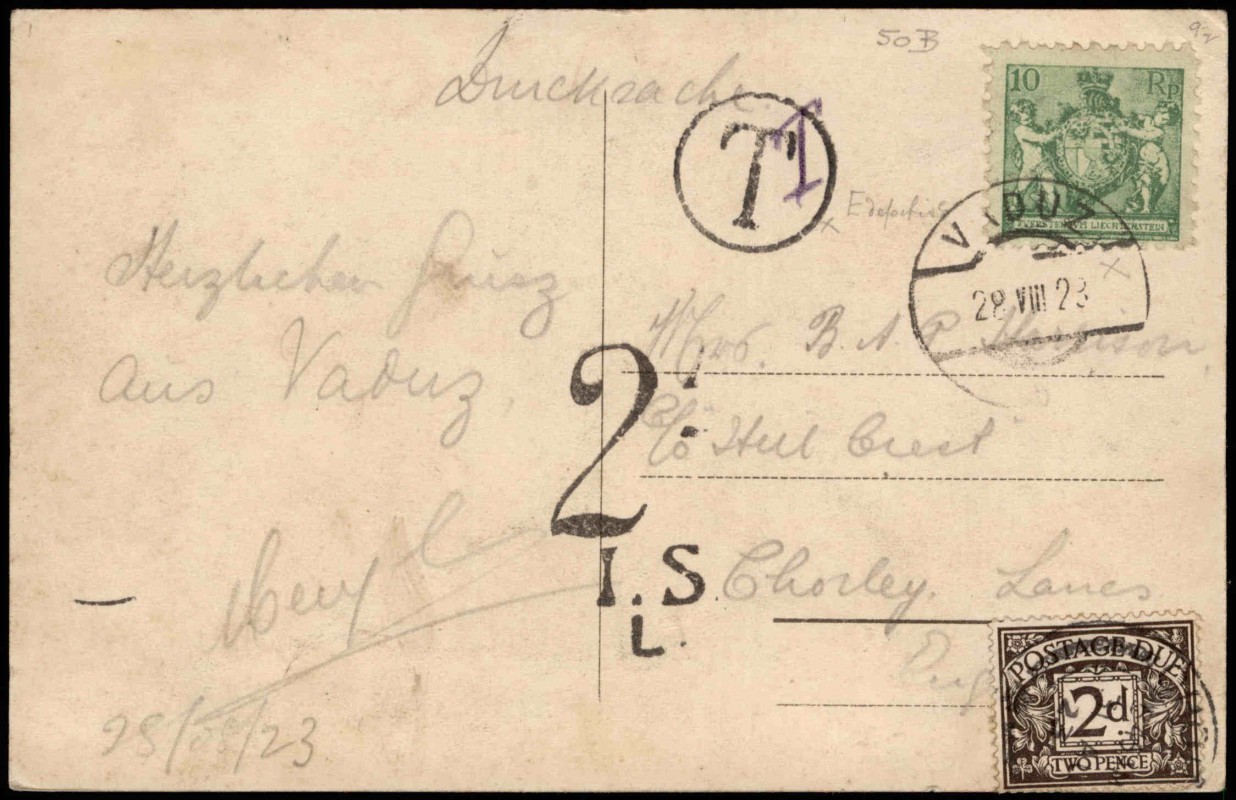 50B
Drucksache.
10 Rp
FUERSTENTUM LIECHTENSTEIN
T
T
VADUZ
28 VIII 23
Herzlichen Grusz
aus Vaduz,
28/VIII/23
Mrs. B. A. P. Harrison,
C/o "Hill Crest"
Chorley. Lancs
2d
I.S.
L.
POSTAGE DUE
2d
TWO PENCE